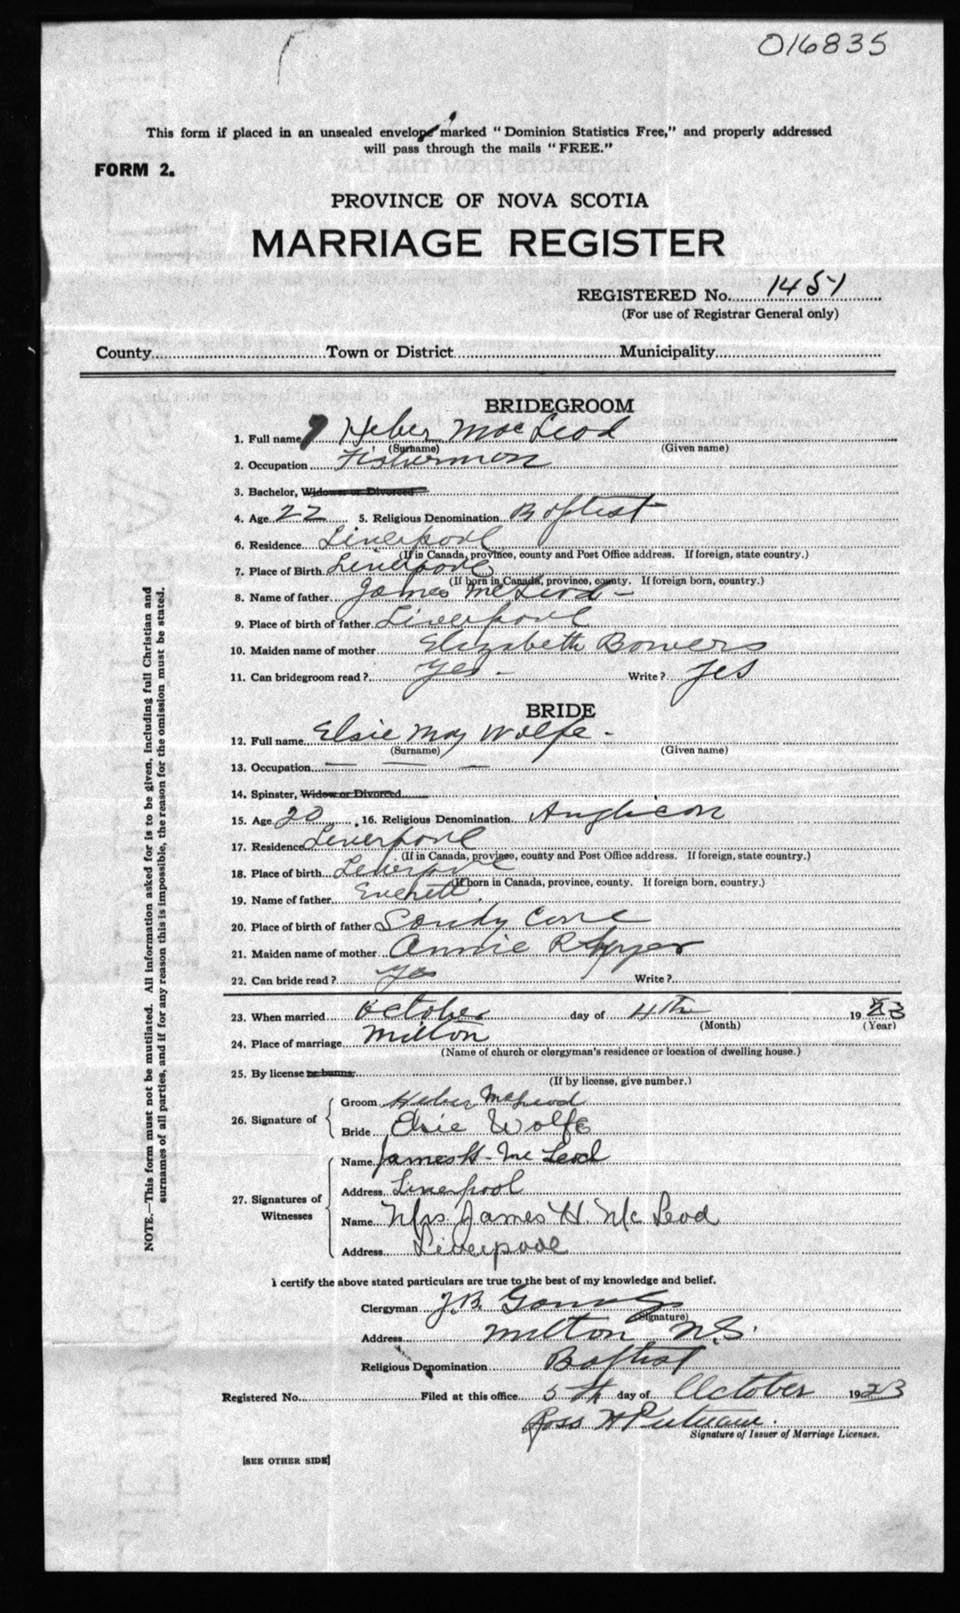 016835
This form if placed in an unsealed envelope marked "Dominion Statistics Free," and properly addressed
will pass through the mails "FREE."
FORM 2.
PROVINCE OF NOVA SCOTIA
MARRIAGE REGISTER
REGISTERED No. 1451
(For use of Registrar General only)
County Town or District Municipality
BRIDEGROOM
1. Full name Heber MacLeod
(Surname) (Given name)
2. Occupation Fisherman
3. Bachelor, Widower or Divorced
4. Age 22 5. Religious Denomination Baptist
6. Residence Liverpool
(If in Canada, province, county and Post Office address. If foreign, state country.)
7. Place of Birth Liverpool
(If born in Canada, province, county. If foreign born, country.)
8. Name of father James McLeod
9. Place of birth of father Liverpool
10. Maiden name of mother Elizabeth Bowers
11. Can bridegroom read? Yes - Write? Yes
BRIDE
12. Full name Elsie May Wolfe -
(Surname) (Given name)
13. Occupation — — —
14. Spinster, Widow or Divorced
15. Age 20 16. Religious Denomination Anglican
17. Residence Liverpool
(If in Canada, province, county and Post Office address. If foreign, state country.)
18. Place of birth Liverpool
(If born in Canada, province, county. If foreign born, country.)
19. Name of father Everett
20. Place of birth of father Sandy Cove
21. Maiden name of mother Annie
22. Can bride read? Yes Write?
23. When married October day of 4th 1923
(Month) (Year)
24. Place of marriage Milton
(Name of church or clergyman's residence or location of dwelling house.)
25. By license or banns
(If by license, give number.)
26. Signature of
Groom Heber McLeod
Bride Elsie Wolfe
27. Signatures of Witnesses
Name James H. McLeod
Address Liverpool
Name Mrs James H McLeod
Address Liverpool
I certify the above stated particulars are true to the best of my knowledge and belief.
Clergyman J.B.
(Signature)
Address Milton N.S.
Religious Denomination Baptist
Registered No. Filed at this office 5th day of October 1923
Ross H Putnam.
Signature of Issuer of Marriage Licenses.
[SEE OTHER SIDE]
NOTE.—This form must not be mutilated. All information asked for is to be given, including full Christian and
surnames of all parties, and if for any reason this is impossible, the reason for the omission must be stated.